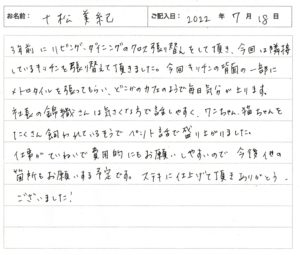 お名前: 十松 美紀 ご記入日: 2022 年 7 月 18 日
3年前にリビング・ダイニングのクロス張り替えをして頂き、今回は隣接
しているキッチンを張り替えて頂きました。今回キッチンの背面の一部に
メトロタイルを張ってもらい、どこかのカフェのようで毎日気分が上ります。
社長の錦織さんは気さくな方で話しやすく、ワンちゃん、猫ちゃんを
たくさん飼われているそうでペット話で盛り上がりました。
仕事がていねいで費用的にもお願いしやすいので今後他の
箇所もお願いする予定です。ステキに仕上げて頂きありがとう
ございました!